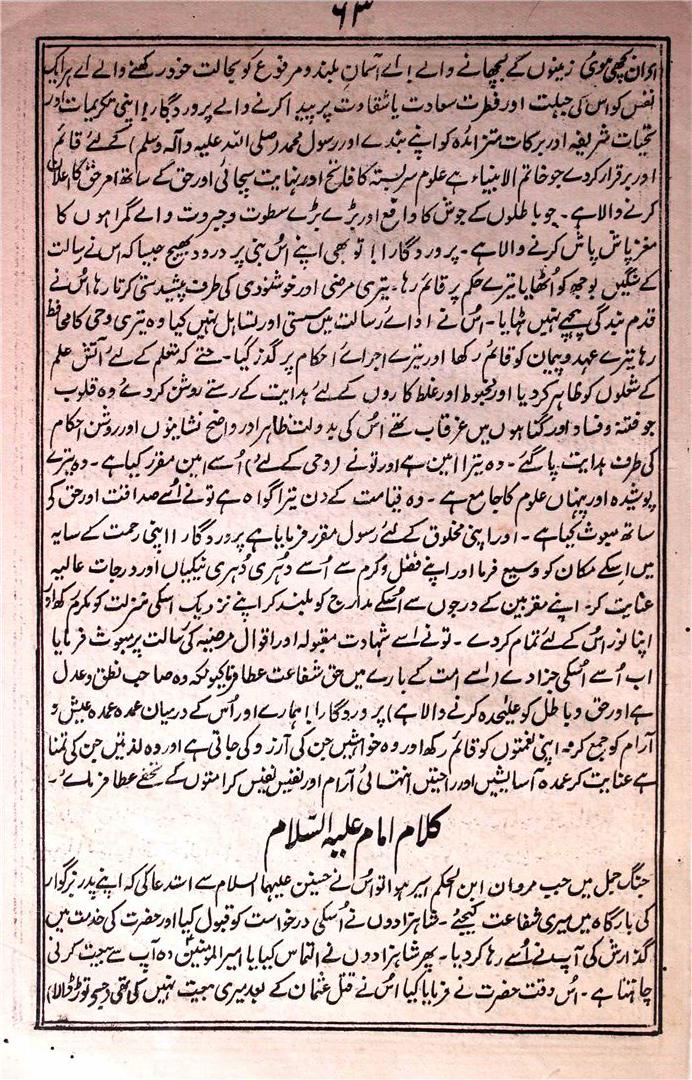 ۶۳
اے ان بچھی ہوئی زمینوں کے بچھانے والے! اے آسمان بلند و مرفوع کو بحالت خود رکھنے والے اے ہر ایک
نفس کو اس کی جبلت اور فطرت سعادت یا شقاوت پر پیدا کرنے والے پروردگار! اپنی تکریمات اور
تحیات شریفہ اور برکات متزائدہ کو اپنے بندے اور رسول محمد (صلی اللہ علیہ وآلہ وسلم) کے لئے قائم
اور برقرار کردے جو خاتم الانبیاء ہے علوم سربستہ کا فاتح اور نہایت سچائی اور حق کے ساتھ امر حق کا اعلان
کرنے والا ہے۔ جو باطلوں کے جوش کا دافع اور بڑے بڑے سطوت و جبروت والے گمراہوں کا
مغز پاش پاش کرنے والا ہے۔ پروردگارا! تو بھی اپنے اس نبی پر درود بھیج جیسا کہ اس نے رسالت
کے سنگین بوجھ کو اٹھایا تیرے حکم پر قائم رہا۔ تیری مرضی اور خوشنودی کی طرف پیشدستی کرتا رہا اس نے
قدم بندگی پیچھے نہیں ہٹایا۔ اس نے ادائے رسالت میں سستی اور تساہل نہیں کیا وہ تیری وحی کا محافظ
رہا تیرے عہد و پیمان کو قائم رکھا اور تیرے اجرائے احکام پر گذر گیا۔ حتے کہ متعلم کے لئے آتش علم
کے شعلوں کو ظاہر کردیا اور مخبوط اور غلط کاروں کے لئے ہدایت کے رستے روشن کردئے وہ قلوب
جو فتنہ و فساد اور گناہوں میں غرقاب تھے اس کی بدولت ظاہر اور واضح نشانیوں اور روشن احکام
کی طرف ہدایت پا گئے۔ وہ تیرا امین ہے اور تونے (وحی کے لئے) اسے امین مقرر کیا ہے۔ وہ تیرے
پوشیدہ اور پنہاں علوم کا جامع ہے۔ وہ قیامت کے دن تیرا گواہ ہے تونے اسے صداقت اور حق کے
ساتھ مبعوث کیا ہے۔ اور اپنی مخلوق کے لئے رسول مقرر فرمایا ہے پروردگارا! اپنی رحمت کے سایہ
میں اسکے مکان کو وسیع فرما اور اپنے فضل و کرم سے اسے دُہری دُہری نیکیاں اور درجات عالیہ
عنایت کر۔ اپنے مقربین کے درجوں سے اسکے مدارج کو بلند کر اپنے نزدیک اسکی منزلت کو مکرم رکھ اور
اپنا نور اس کے لئے تمام کردے۔ تونے اسے شہادت مقبولہ اور اقوال مرضیہ کی رسالت پر مبعوث فرمایا
اب اسے اسکی جزا دے (اسے امت کے بارے میں حق شفاعت عطا فرما) کیونکہ وہ صاحب نطق و عدل
ہے اور حق و باطل کو علیٰحدہ کرنے والا ہے) پروردگارا! ہمارے اور اس کے درمیان عمدہ عمدہ عیش و
آرام کو جمع کر۔ اپنی نعمتوں کو قائم رکھ اور وہ خواہشیں جن کی آرزو کی جاتی ہے اور وہ لذتیں جن کی تمنا
ہے عنایت کر عمدہ آسایشیں اور راحتیں انتہائی آرام اور نفیس نفیس کرامتوں کے تحفے عطا فرمائے۔
کلام امام علیہ السّلام
جنگ جمل میں جب مروان ابن الحکم اسیر ہوا تو اس نے حسنین علیہما السلام سے استدعا کی کہ اپنے پدر بزرگوار
کی بارگاہ میں میری شفاعت کیجئے۔ شاہزادوں نے اسکی درخواست کو قبول کیا اور حضرت کی خدمت میں
گذارش کی آپ نے اسے رہا کردیا۔ پھر شاہزادوں نے التماس کیا یا امیرالمومنینؑ وہ آپ سے بیعت کرنی
چاہتا ہے۔ اس وقت حضرت نے فرمایا کیا اس نے قتل عثمان کے بعد میری بیعت نہیں کی تھی (جسے توڑ ڈالا)